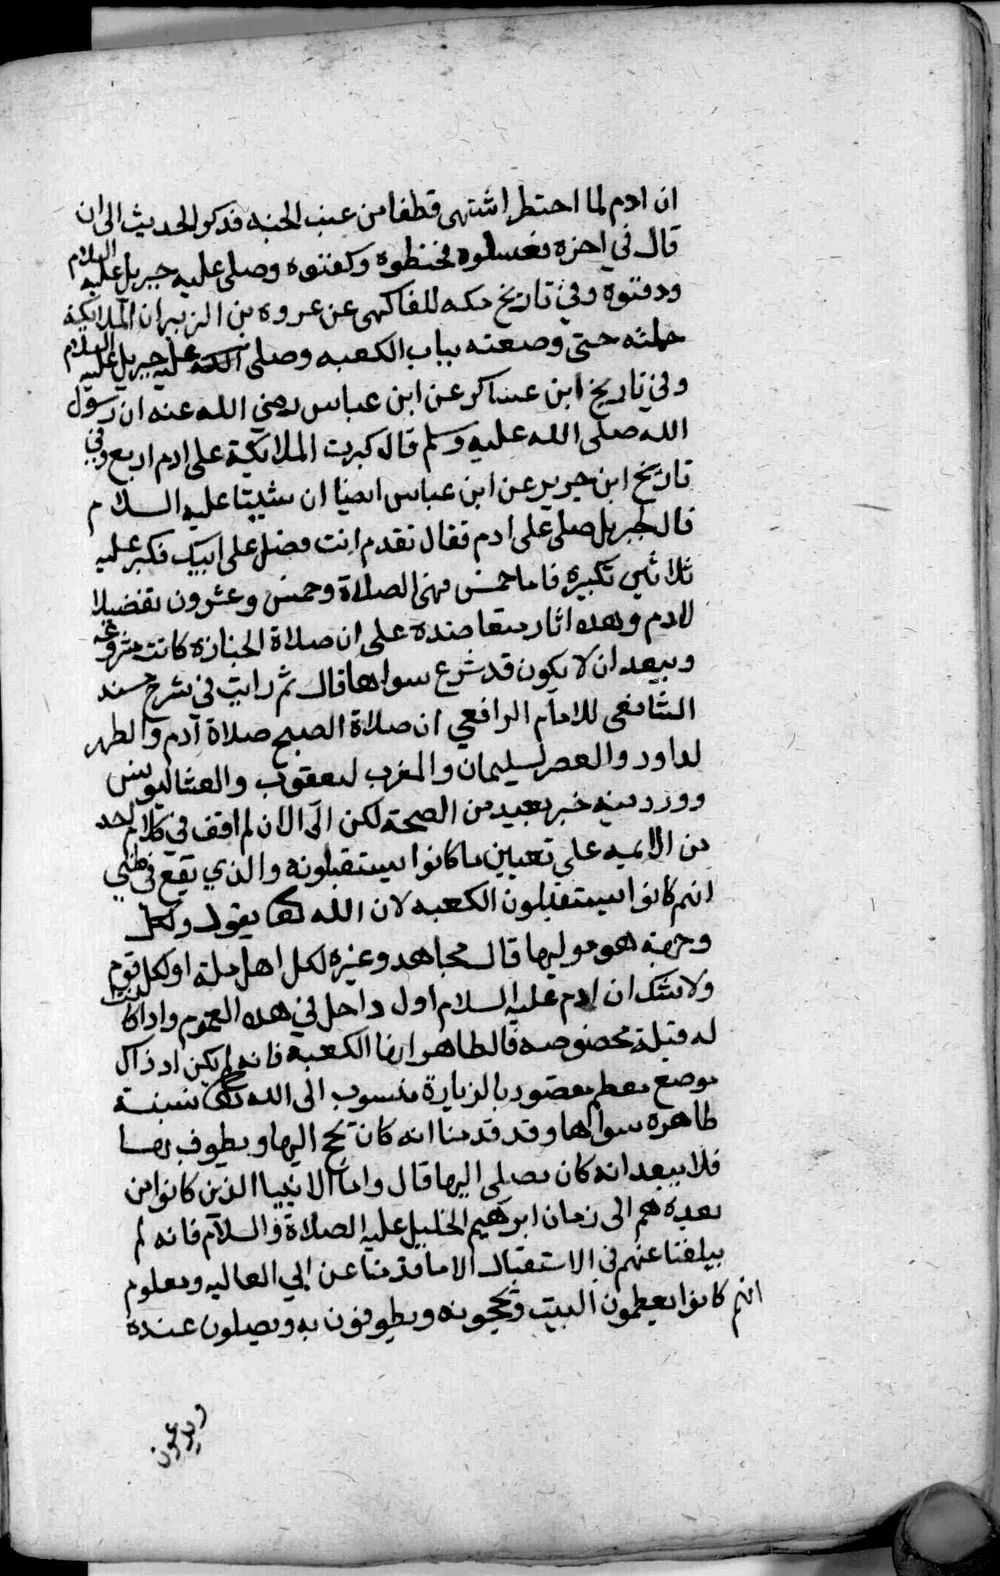 ان ادم لما احتطر اشتهى قطفا من عنب الجنه فذكر الحديث الى ان
قال في اخره فغسلوه فحنطوه وكفنوه وصلى عليه جبريل عليه السلام
ودفنوه وفي تاريخ مكه للفاكهى عن عروه بن الزبير ان الملايكة
حملته حتى وضعته بباب الكعبه وصلى عليه جبريل عليه السلام
وفي تاريخ ابن عساكر عن ابن عباس رضي الله عنه ان رسول
الله صلى الله عليه وسلم قال كبرت الملايكة على ادم اربع وفي
تاريخ ابن جرير عن ابن عباس ايضا ان شيثا عليه السلام
قال لجبريل صلى على ادم فقال تقدم انت فصل على ابيك فكبر عليه
ثلاثين تكبيره فاما خمس فهى الصلاة وخمس وعشرون تفضيلا
لادم وهده اثار متعاضده على ان صلاة الجنازه كانت مشروعه
ويبعد ان لا يكون قد شرع سواها قال ثم رايت في شرح مسند
الشافعى للامام الرافعي ان صلاة الصبح صلاة آدم والظهر
لداود والعصر لسليمان والمغرب ليعقوب والعشا ليونس
وورد فيه خبر بعيد من الصحة لكن الى الان لم اقف في كلام احد
من الايمه على تعيين ما كانوا يستقبلونه والذي يقع في ظني
انهم كانوا يستقبلون الكعبه لان الله تعالى يقول ولكل
وجهة هو موليها قال مجاهد وغيره لكل اهل ملة او لكل قوم
ولا شك ان ادم عليه السلام اول داخل في هده العموم وادا كانت
له قبلة مخصوصه فالظاهر انها الكعبة فانه لم يكن اد ذاك
موضع معظم مقصود بالزيارة منسوب الى الله تعالى نسبة
ظاهرة سواها وقد قدمنا انه كان يحج اليها ويطوف بها
فلا يبعد انه كان يصلى اليها قال واما الانبيا الذين كانوا من
بعده هم الى زمان ابرهيم الخليل عليه الصلاة والسلام فانه لم
يبلغنا عنهم في الاستقبال الا ما قدمنا عن ابي العاليه ومعلوم
انهم كانوا يعظمون البيت ويحجونه ويطوفون به ويصلون عنده
ويدعون